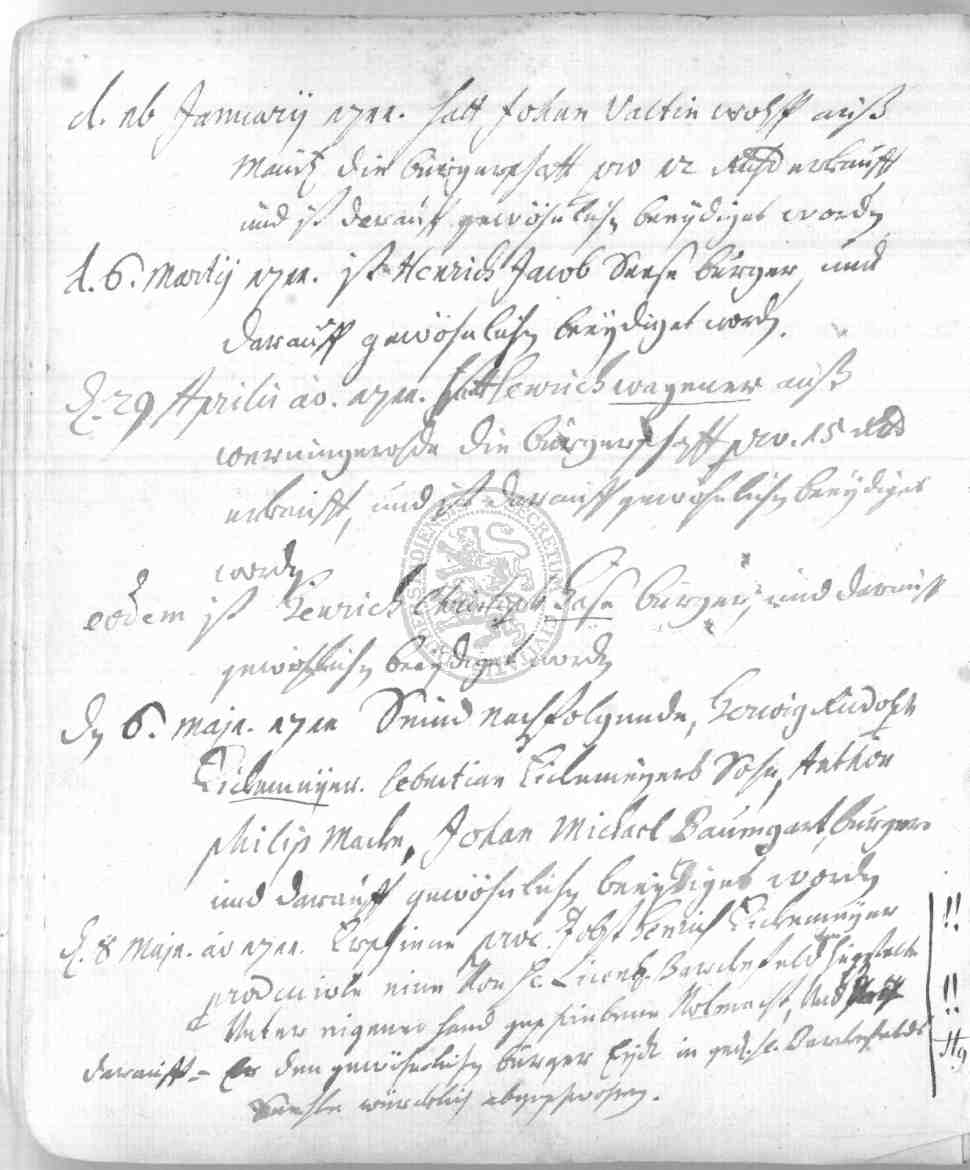 d. 26 Januarij 1711. hatt Johan Valtin Wolff auß
die bürgerschafft pro 12 erkaufft
und ist darauff gewöhnlichen beeydiget worden
d. 6. Martij 1711. ist Henrich Jacob bürger, und
darauff gewöhnlichen beeydiget worden.
d. 29 Aprilis ao. 1711. hatt Henrich Wagener auß
Werningerohde die bürgerschafft pro. 15
erkaufft, und ist darauff gewöhnlichen beeydiget
worden
eodem ist Henrich Christoph Hase bürger, und darauff
gewöhnlichen beeydiget worden
den 6. Maji. 1711 Seind nachfolgende, Herwig Rudolph
Eickemeyer. Sebastian Eickemeyers Sohn, Anthon
Philip Macke, Johan Michael Baumgart, bürger
und darauff gewöhnlichen beeydiget worden
d. 8 Maji. ao 1711. Erschiene Jobst Henrich Eickemeyer
eine von H. Licent. Berckefeld
Unter eigener hand geschriebene Volmacht, Und
darauff - Er den gewöhnlichen bürger Eydt in Berckefelds
Seehle würcklich abgeschworen.
!!
!!